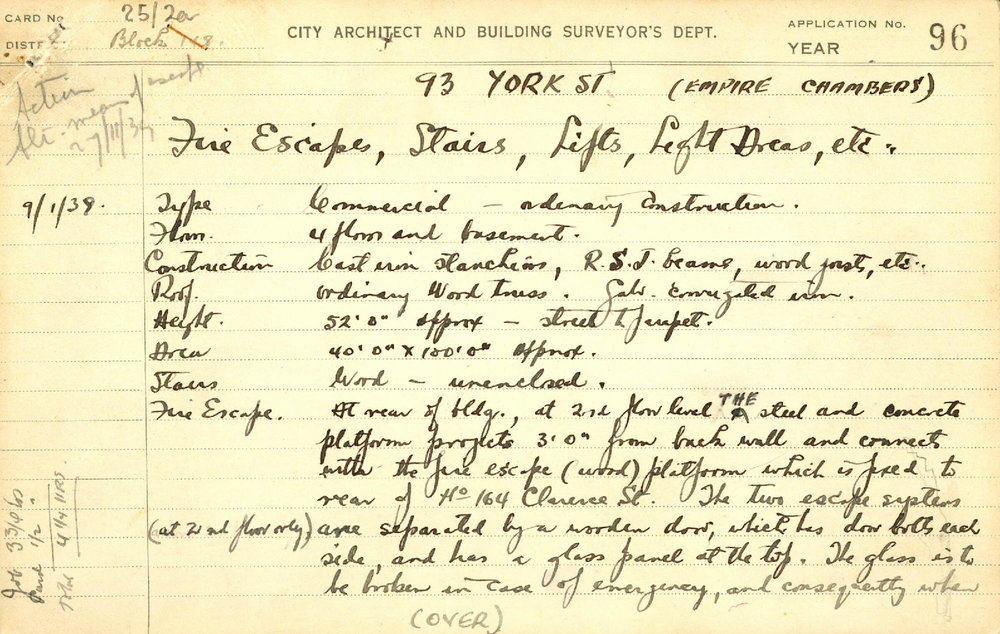 CARD No. 25/2a
DISTRICT Block
CITY ARCHITECT AND BUILDING SURVEYOR'S DEPT.
APPLICATION No.
YEAR
96
Action
Alt. means of escape
93 YORK ST (EMPIRE CHAMBERS)
Fire Escapes, Stairs, Lifts, Light Areas, etc.
9/1/39. Type Commercial - ordinary construction.
Floors. 4 floors and basement.
Construction Cast iron stanchions, R.S.J. beams, wood joists, etc.
Roof. ordinary Wood truss. Galv. corrugated iron.
Height. 52'0" approx - street to parapet.
Area 40'0" x 100'0" approx.
Stairs Wood - unenclosed.
Fire Escape. At rear of bldg., at 2nd floor level THE steel and concrete
platform projects 3'0" from back wall and connects
with the fire escape (wood) platform which is fixed to
rear of No 164 Clarence St. The two escape systems
(at 2nd floor only) are separated by a wooden door, which has door bolts each
side, and has a glass panel at the top. The glass is to
be broken in case of emergency, and consequently when
(OVER)
Job
1/2
4 1/4 HRS